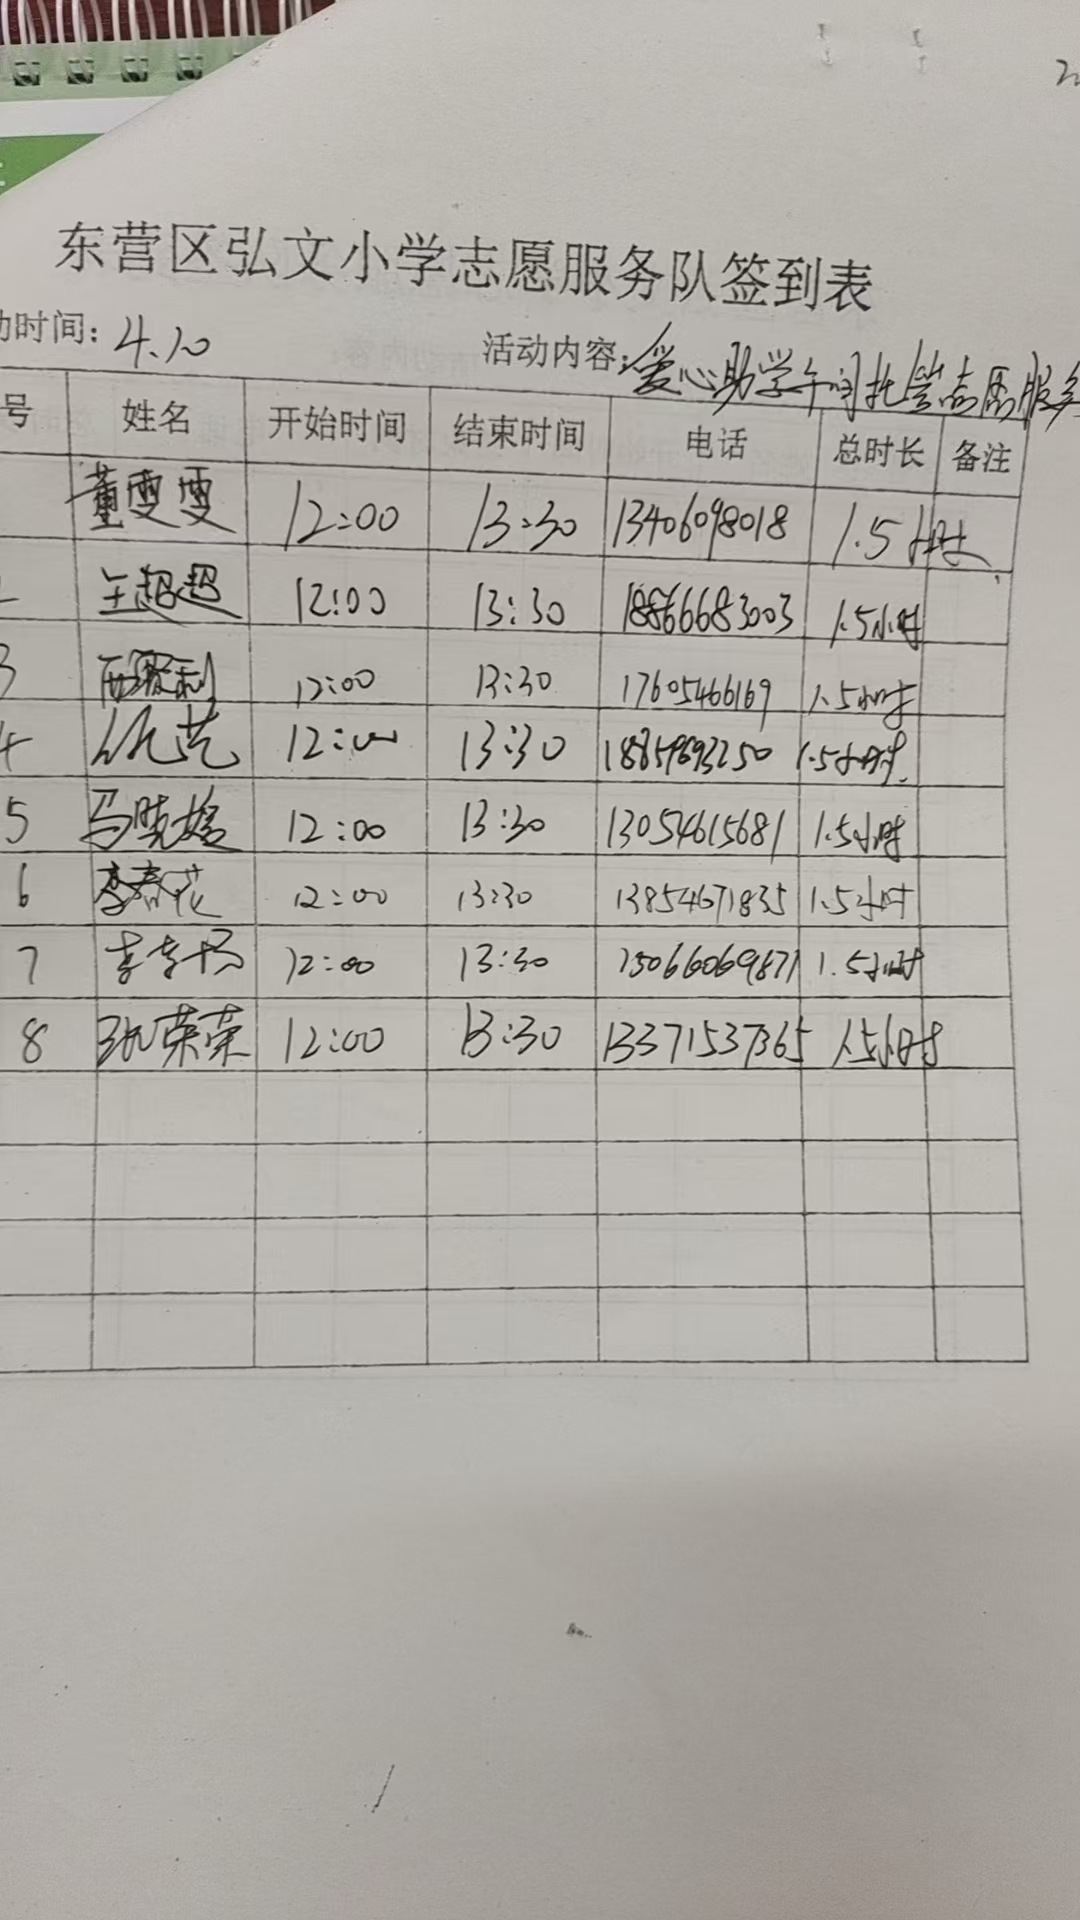 东营区弘文小学志愿服务队签到表
动时间: 4.10 活动内容: 爱心助学午间托管志愿服务
号 姓名 开始时间 结束时间 电话 总时长 备注
董雯雯 12:00 13:30 13406098018 1.5小时
2 王超超 12:00 13:30 18866683003 1.5小时
3 12:00 13:30 17605466169 1.5小时
4 12:00 13:30 1.5小时
5 马晓婷 12:00 13:30 13054615681 1.5小时
6 李春花 12:00 13:30 13854671835 1.5小时
7 12:00 13:30 15066069871 1.5小时
8 张荣荣 12:00 13:30 13371537365 1.5小时